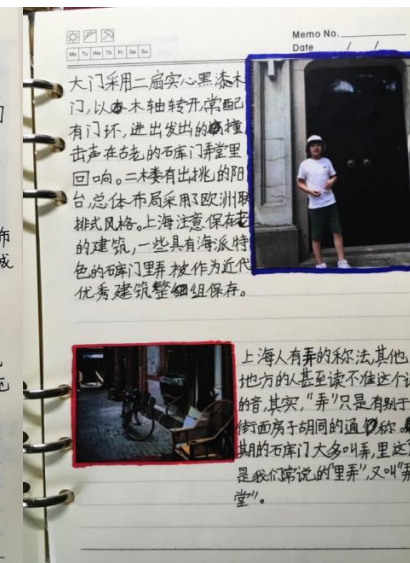 Memo No.
Date / /
Mo Tu We Th Fr Sa Su
大门采用二扇实心黑漆木
门,以木轴转开,常配
有门环,进出发出的撞
击声在古老的石库门弄堂里
回响。二楼有出挑的阳
台,总体布局采用了欧洲联
排式风格。上海注意保存老
的建筑,一些具有海派特
色的石库门里弄被作为近代
优秀建筑整组保存。
上海人有弄的称法,其他
地方的人甚至读不准这个
的音,其实,“弄”只是有别于
街面房子胡同的通称。
期的石库门大多叫弄,里这
是我们常说的“里弄”,又叫“弄
堂”。
布
成